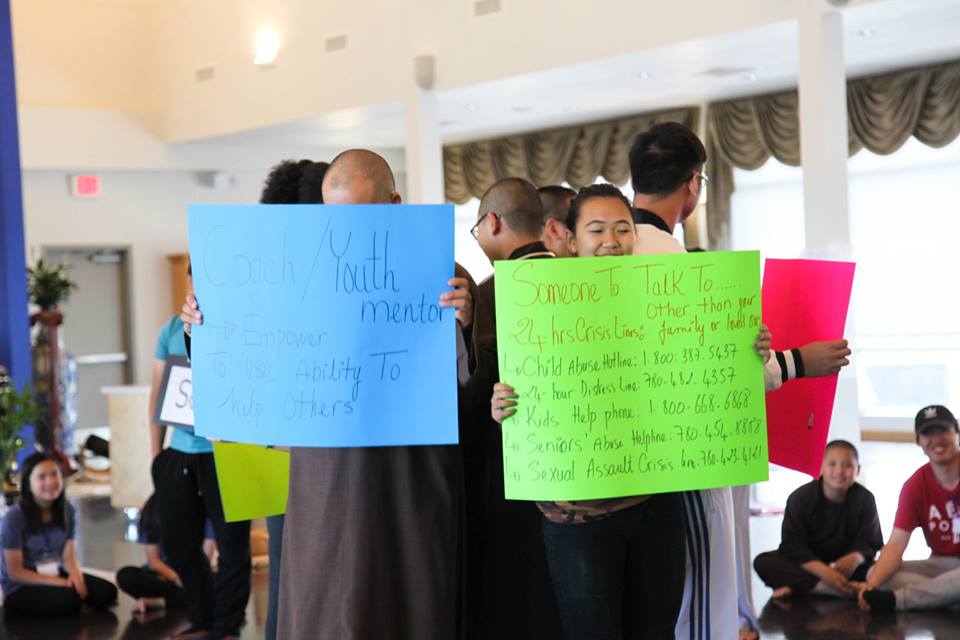 EXIT
Coach/Youth
mentor
→ Empower
To Use Ability To
help Others
Someone To Talk To......
Other than your
family or loved one
24 hrs Crisis Lines:
↳ Child Abuse Hotline: 1.800.387.5437
↳ 24-hour Distress Line: 780-482.4357
↳ Kids Help phone: 1-800-668-6868
↳ Seniors' Abuse Helpline: 780.454.8888
↳ Sexual Assault Crisis line: 780.423.4121